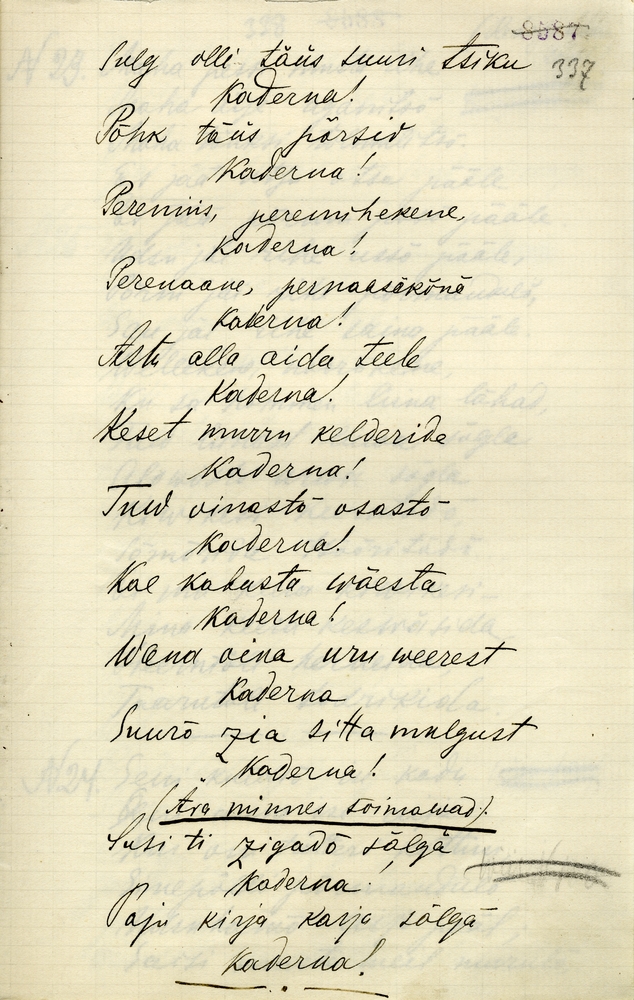 8587
337
Sulg olli täüs suuri tsiku
Kaderna!
Põhk täüs põrsid
Kaderna!
Peremiis, peremihekene,
Kaderna!
Perenaane, pernaasäkõnõ
Kaderna!
Astu alla aida teele
Kaderna!
Keset murru kelderide
Kaderna!
Tuud oinastõ osastõ
Kaderna!
Kae kabusta wäesta
Kaderna!
Wana oina uru weerest
Kaderna
Suurõ zia sitta mulgust
Kaderna!
(Ära minnes sõimawad).
Susi ti zigadõ sälgä
Kaderna!
Paju kirja karja sälgä
Kaderna!